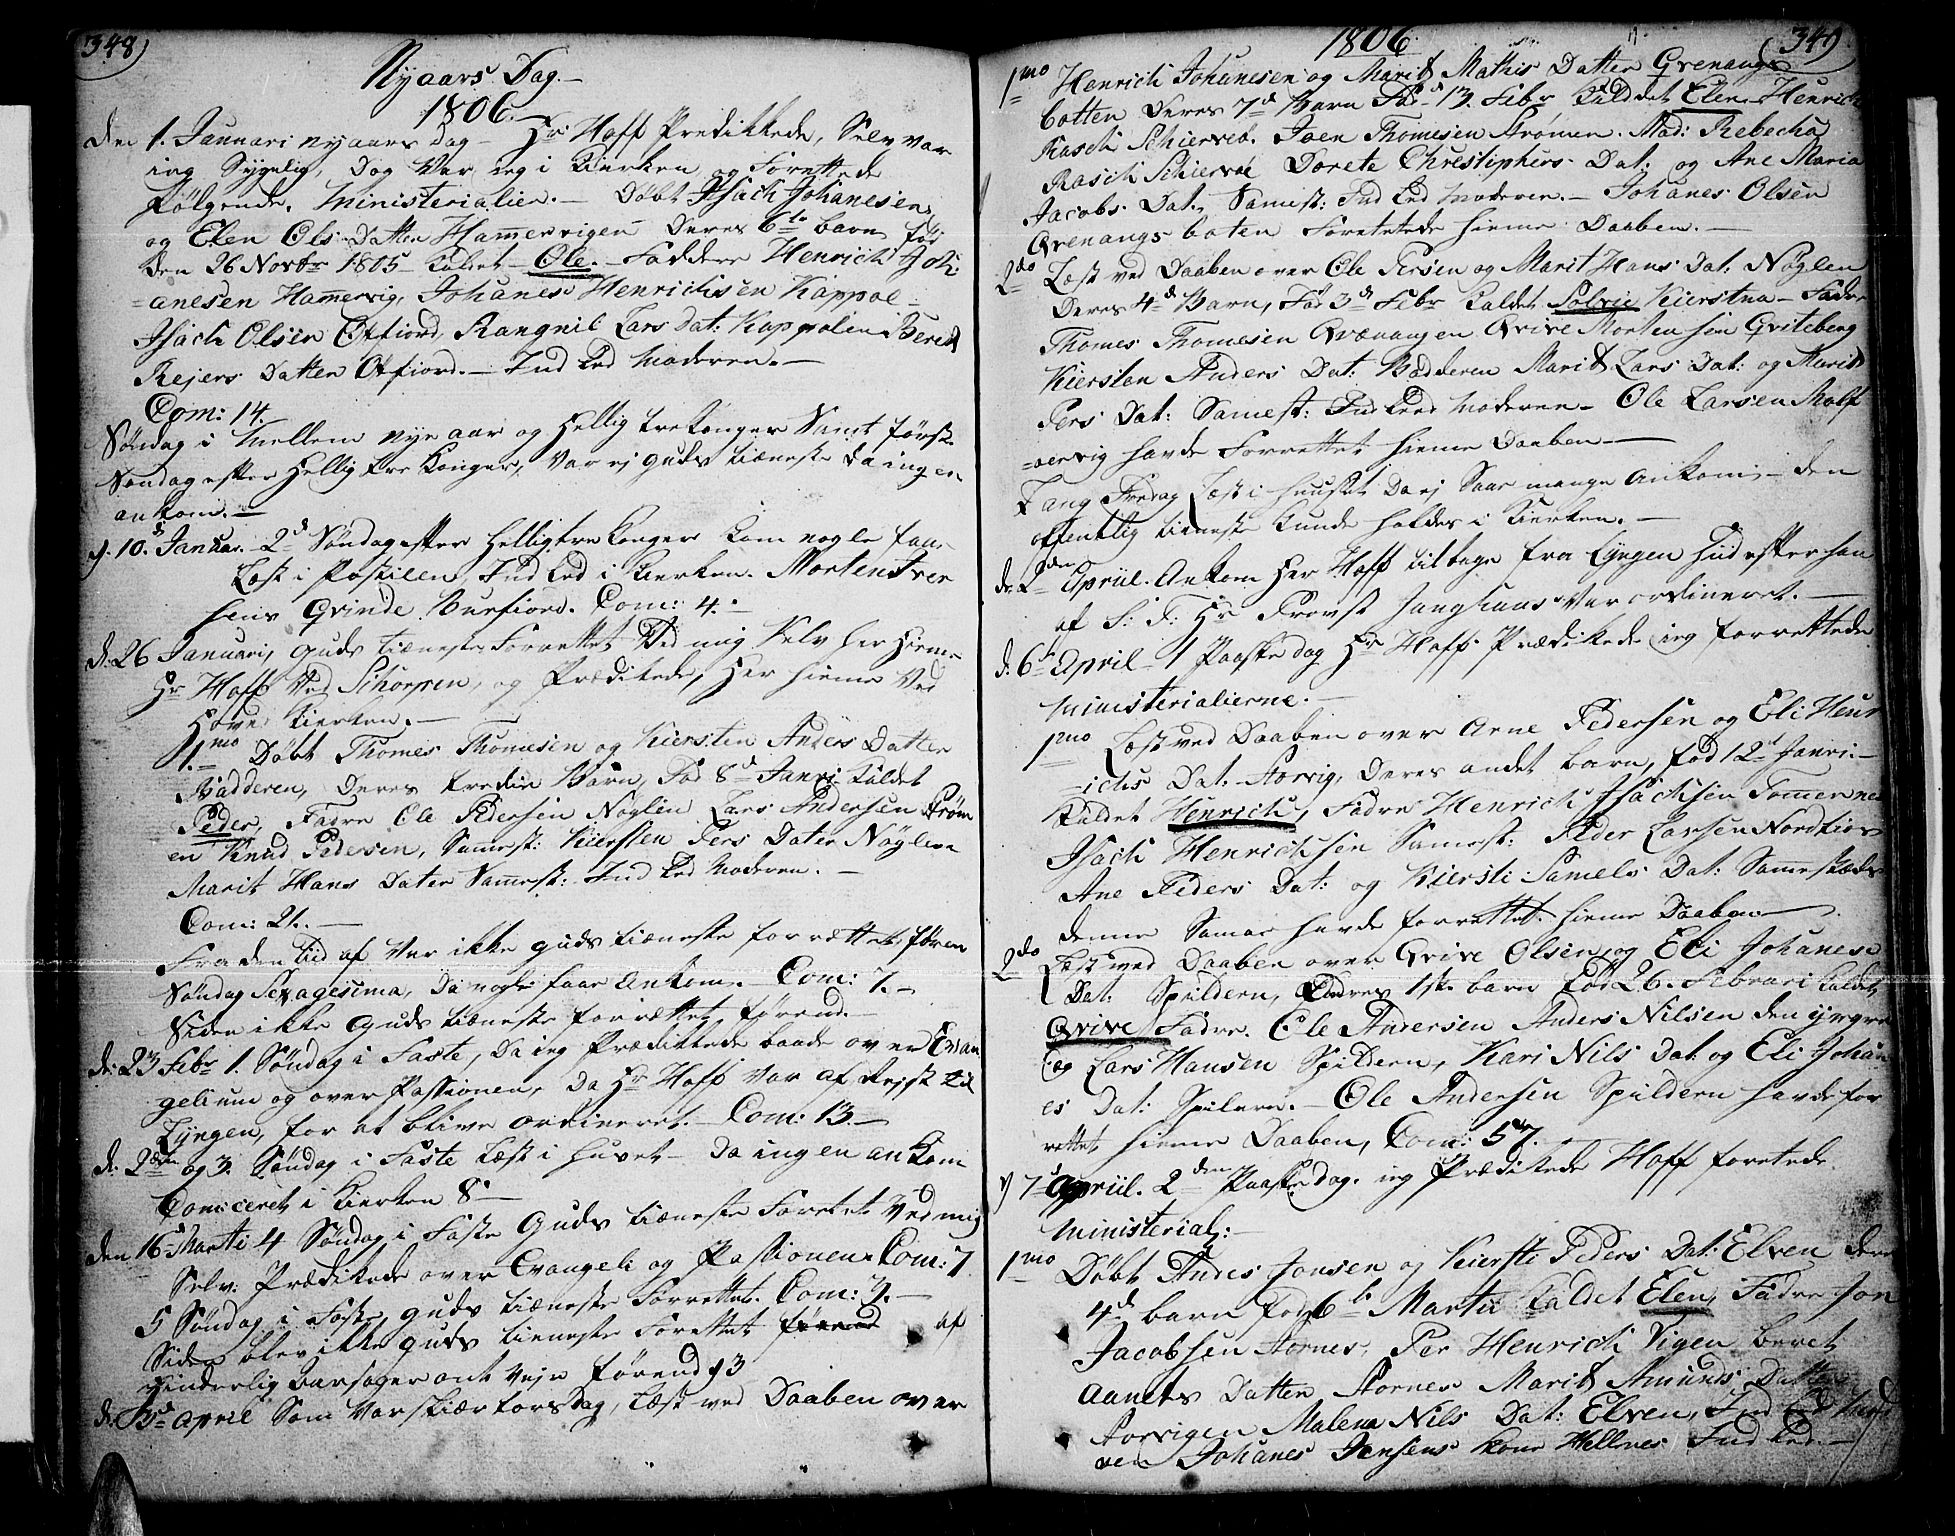 348)
Nyaars Dag.
1806.
den 1. Januari nyaars dag — Hr: Hoff Predikkede, Selv var
ieg Sygelig, Dog Var ieg i Kierken og Forettede
følgende. Ministerialier. — Døbt Isach Johanesen
og Elen Ols Datter Hammervigen Deres 6te barn, föd
den 26 Novbr 1805 Kaldet Ole. Faddere Henrich Joh:
=anesen Hamervig, Johanes Henrichsen Kappoe =
Isach Olsen Oxfiord, Rangnil Lars Dat: Kappolen Beret
Rejers Datter Oxfiord. — Ind Led Moderen. —
Com: 14.
Søndag i Mellem nye aar og Hellig tre konger Samt først
Søndag efter Hellig tre Konger, Var ej guds tieneste da ingen
ankom. —
d. 10. Januar. 2d Søndag efter Helligtre konger kom nogle faa
Læst i Postilen, Ind Led i Kierken. Morten Iver
sens Qvinde Burfiord. Com: 4. —
d: 26 Januari, guds tieneste Forrettet Ved mig Selv her Hieme
Hr Hoff Ved Schorpen, og Prædikede, Her hieme Ved
Hoved Kierken. —
1mo Døbt Thomes Thomesen og Kiersten Anders Datter
Badderen, Deres tredie Barn, Fød 8d Janri Kaldet
Peder, Fadre Ole Pedersen Nøglen Lars Andersen Strøm
en Knud Pedersen, Samest: Kiersten Pers Dater Nøglen
Marit Hans Dater Sammest: Ind Led Moderen. —
Com: 21. —
Fra den tid af Var ikke guds tieneste forrættet føren
Søndag Sexagesima, Da nogle faae Ankom. — Com: 7. —
Siden ikke Guds tieneste forrættet førend. —
d: 23 Febr 1. Søndag i Faste, Da ieg Prædikkede baade over Evan
gelium og over Passionen, Da Hr Hoff Var af Rejst til
Lyngen, for at blive Ordineret. — Com: 13. —
d. 2den og 3. Søndag i Faste Læst i huset — Da ingen ankom
Comiceret i Kierken 8 —
den 16 Marti 4 Søndag i Faste Guds tieneste Forettet Ved mig
Selv: Prædikede over Evangeli og Passionen Com: 7
5 Søndag i Faste guds tieneste Forrettet. Com: 7. —
Siden blev ikke guds tieneste Forettet førend af
hinderlig Aarsager ont Vejr førend 3
d: 3d April Som Var skiær torsdag, Læst ved Daaben over
1806
349)
1mo Henrich Johanesen og Marit Mathis Datter Qvenangs
botten Deres 7d Barn Fød 13 Febr Kaldet Elen. Henrich
Rasch Schiervöe. Joen Thomesen Strømen. Mad: Rebecha
Rasch Schiervöe Dorete Christophers Dat: og Ane Maria
Jacobs Dat., Samest: Ind Led Moderen. — Johanes Olsen
Qvenangs boten Forettede hieme Daaben. —
2do Læst ved Daaben over Ole Persen og Marit Hans Dat: Nøglen
Deres 4d Barn, Föd 3d Febr Kaldet Solvie Kierstna — Fadre
Thomes Thomesen Qvænangen Qvive Mortensen Qviteberg
Kiersten Anders Dat: Badderen Marit Lars Dat: og Marit
Pers Dat: Samest: Ind Led Moderen — Ole Larsen Rolf
=oervig havde Forrettet hieme Daaben. —
Lang Fredag Læst i huuset Da ej Saa mange Ankom, den
offentlig tieneste kunde holdes i Kierken. —
d: 2den Apriil. Ankom Her Hoff tilbage fra Lyngen hid efter han
af S: T: Hr Provst Junghans Var ordineret. —
d: 6d April 1 Paaske dag Hr Hoff Prædikede ieg forrettede
Ministerialierne. —
1mo Læst ved Daaben over Arne Pedersen og Eli Henr
=ichs Dat. Storvig, Deres andet barn, föd 12d Janri. —
Kaldet Henrich, Fadre Henrich Isachsen Tømernes
Isach Henrichsen Samest: Peder Larsen Nordkios
Ane Peders Dat: og Kiersti Samels Dat: Sammestæds
denne Samae havde forrettet hieme Daaben. —
2do Læst ved Daaben over Qvive Olsen og Eli Johanese
Dat: Spildern, Deres 1ste barn Föd 26. Februari Kaldet
Qvive Fadre. Ole Andersen Anders Nilsen den yngre
og Lars Hansen Spildern, Kari Nils Dat: og Eli Johan
es Dat: Spildern. — Ole Andersen Spildern havde for
rettet hieme Daaben, Com: 57.
d 7 Apriil. 2den Paaske dag. ieg Prædikede Hoff foretede
Ministerial: —
1mo Döbt Andes Jonsen og Kiersti Peders Dat: Elven dere
4d barn Föd 6te Martii Kaldet Elen, Fadre Jon
Jacobsen Stornes, Per Henrich Vigen beret
Aanets Datter Stornes Marit Amunds Datter
Storvigen Malena Nils Dat: Elven, Ind Led Mod
ren Johanes Jensens kone Hellnes Ind Led. —